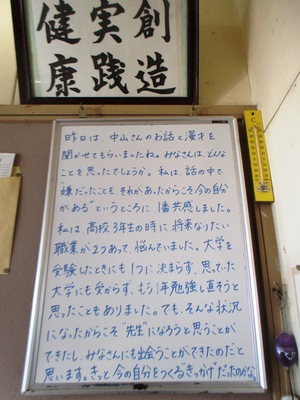 創造
実践
健康
昨日は、中山さんのお話と漫才を
聞かせてもらいましたね。みなさんは、どんな
ことを思ったでしょうか。私は、話の中で
"嫌だったことも、それがあったからこそ今の自分
がある"というところに1番共感しました。
私は高校3年生の時に将来なりたい
職業が2つあって、悩んでいました。大学を
受験したときにも1つに決まらず、思っていた
大学にも受からず、もう1年勉強し直そうと
思ったこともありました。でも、そんな状況
になったからこそ"先生"になろうと思うことが
できたし、みなさんにも出会うことができたのだと
思います。きっと今の自分をつくる"きっかけ"だったのかな